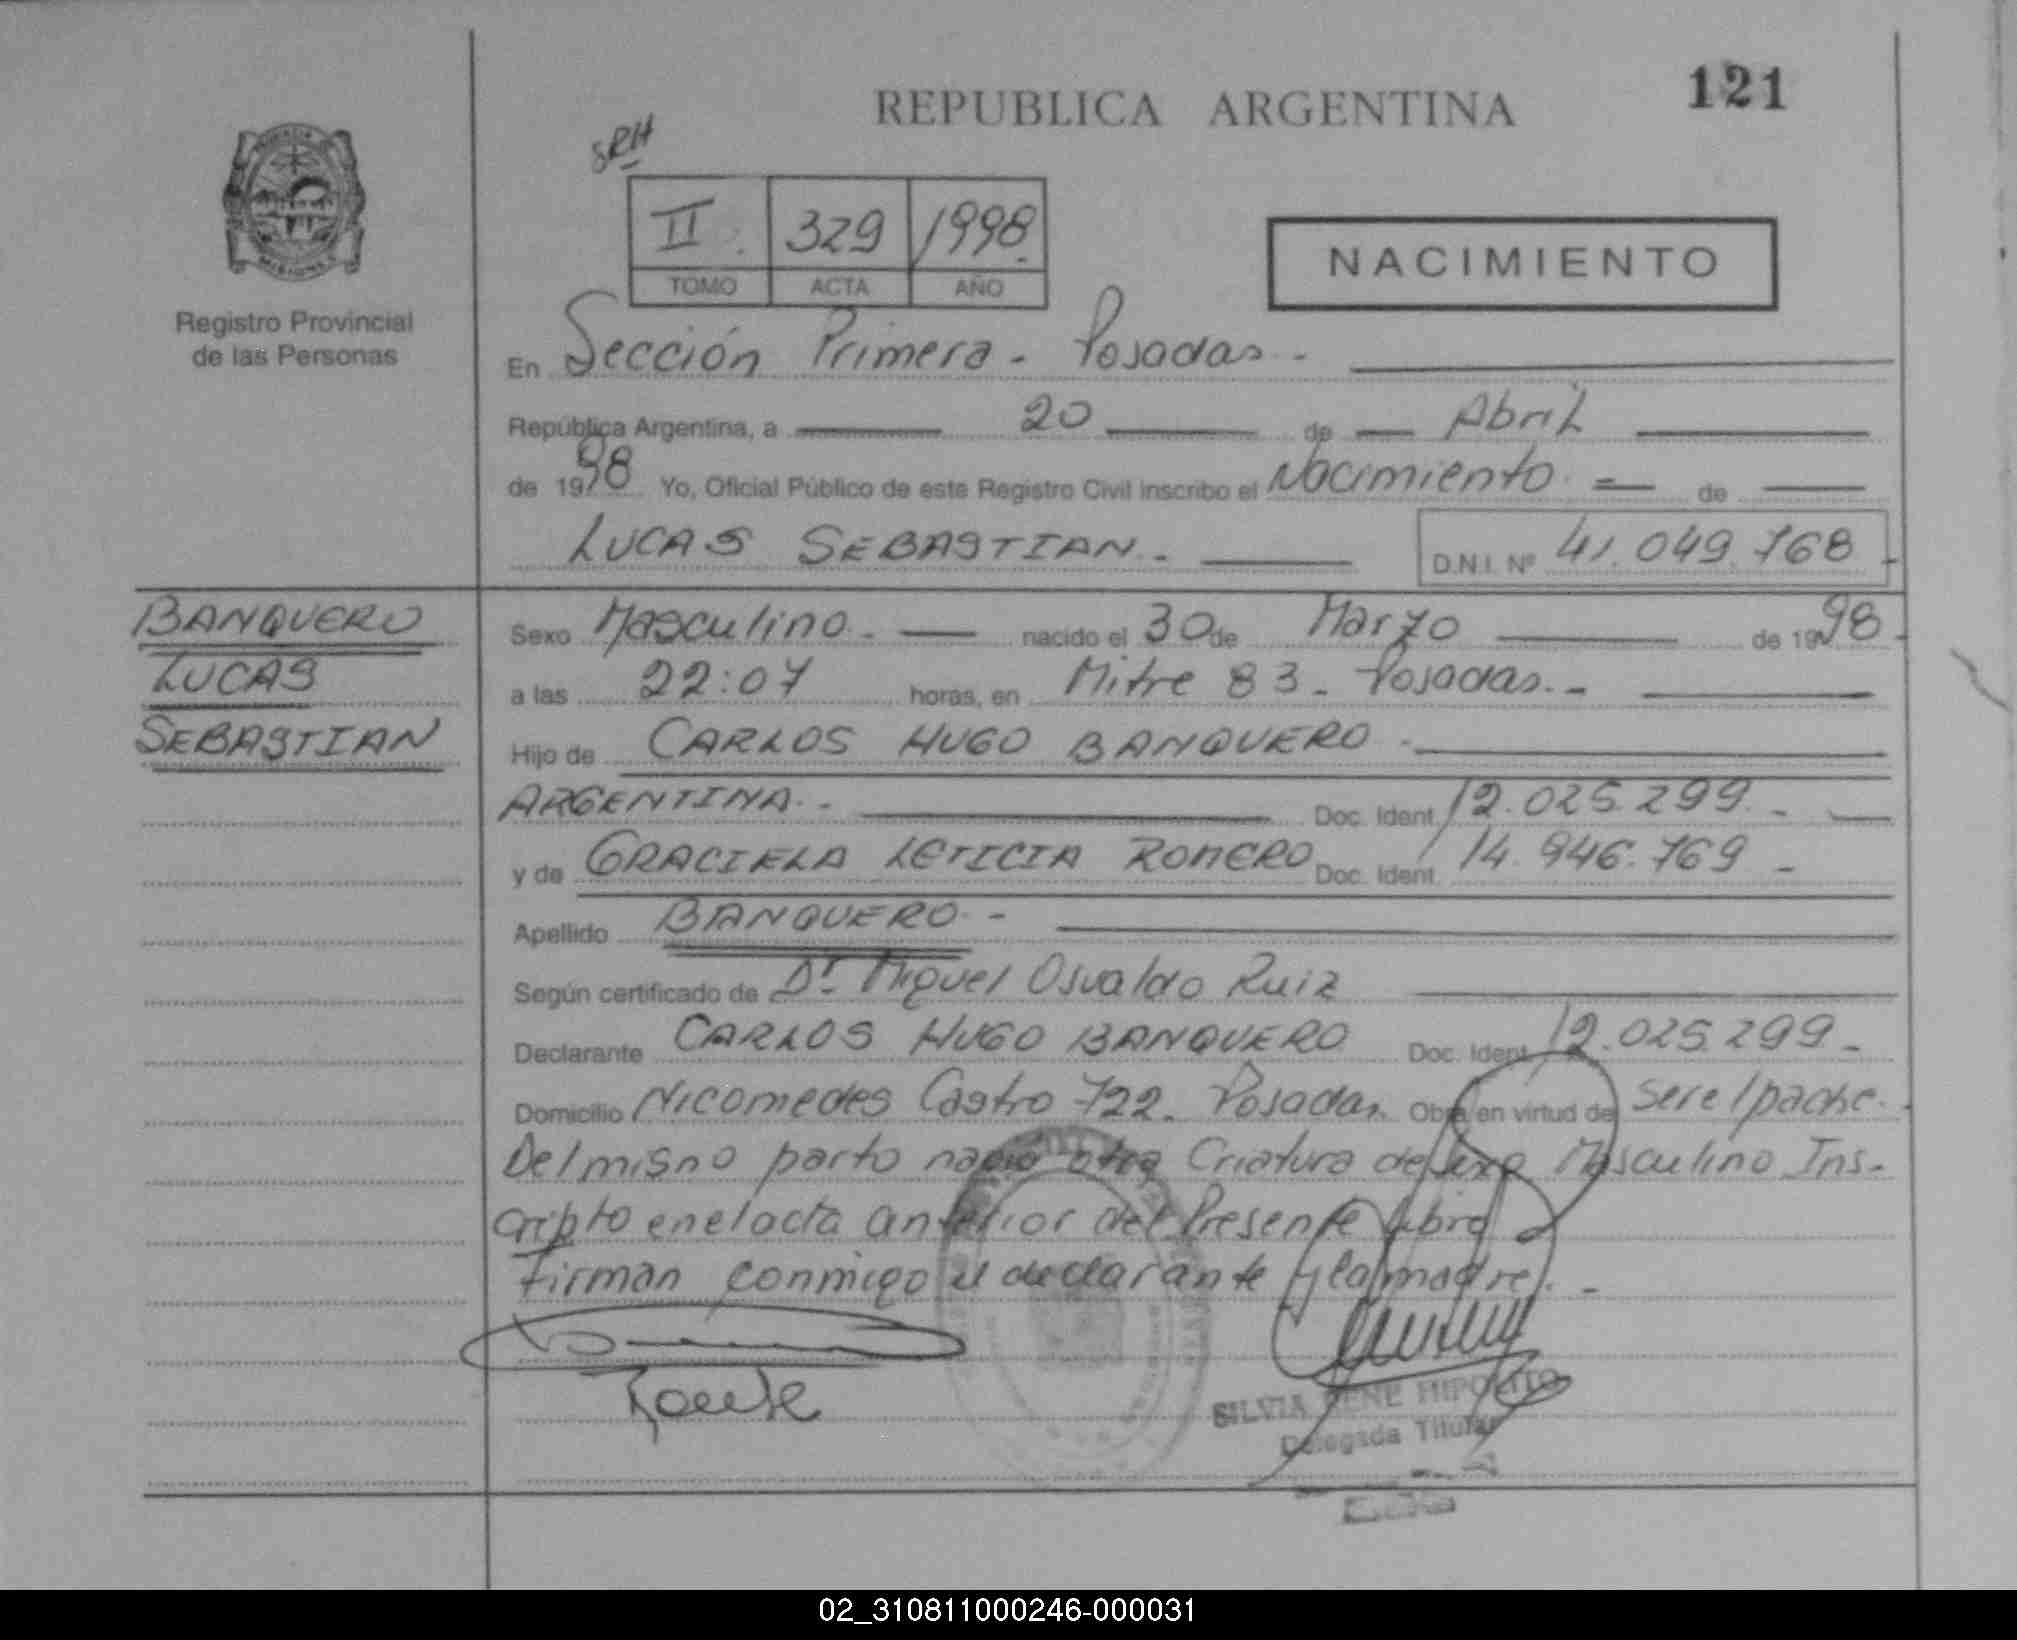 121
REPUBLICA ARGENTINA
SRH
II. 329 1998.
TOMO ACTA AÑO
NACIMIENTO
MISIONES
Registro Provincial
de las Personas
En Sección Primera - Posadas -
República Argentina, a 20 de Abril
de 1998 Yo, Oficial Público de este Registro Civil inscribo el Nacimiento de
LUCAS SEBASTIAN.- D.N.I. Nº 41.049.768 -
BANQUERO
LUCAS
SEBASTIAN
Sexo Masculino.- nacido el 30 de Marzo de 1998.
a las 22:07 horas, en Mitre 83 - Posadas.-
Hijo de CARLOS HUGO BANQUERO.-
ARGENTINA.- Doc. Ident. 12.025.299.-
y de GRACIELA LETICIA ROMERO Doc. Ident. 14.946.769 -
Apellido BANQUERO.-
Según certificado de Dr. Miguel Osvaldo Ruiz
Declarante CARLOS HUGO BANQUERO Doc. Ident. 12.025.299.-
Domicilio Nicomedes Castro 722. Posadas. Obra en virtud de ser el padre.-
Del misno parto nació otra Criatura de sexo Masculino Ins-
cripto en el acta anterior del Presente libro
Firman conmigo el declarante y la madre.-
SILVIA RENE HIPOLITO
Delegada Titular
02_310811000246-000031